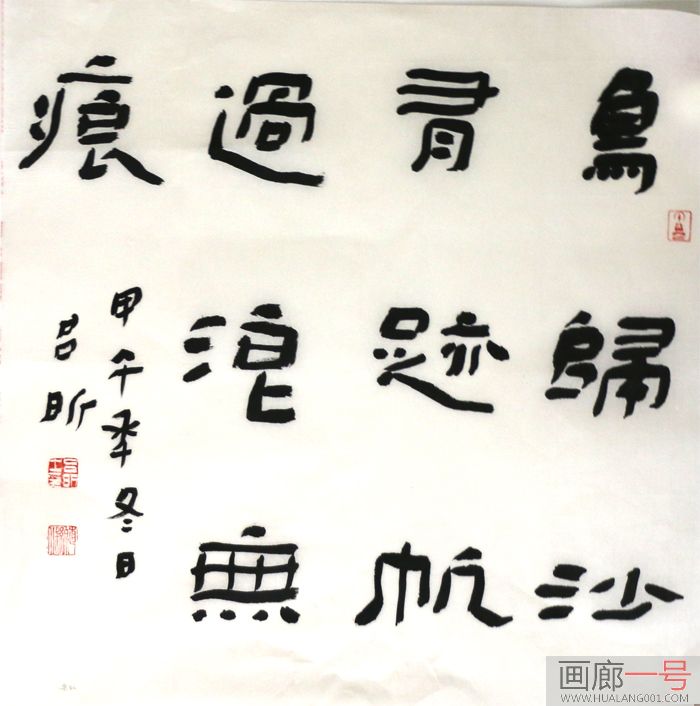 鳥歸沙
有跡帆
過浪無
痕
甲午年冬日
吕昕
画廊一号
WWW.HUALANG001.COM